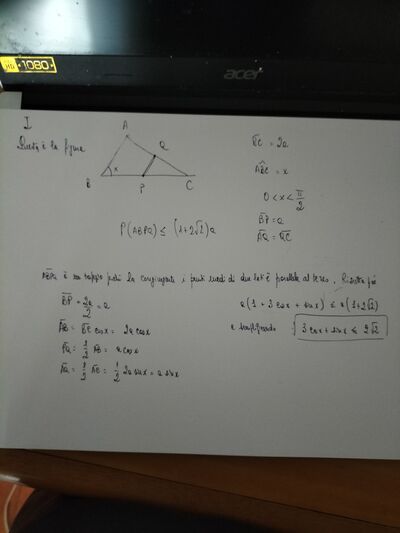 HD 1080
acer
I
Questa è la figura
A
Q
B
x
P
C
BC = 2a
AB̂C = x
0 < x < π/2
BP = a
AQ = QC
P(ABPQ) ≤ (1+2√2)a
ABPQ è un trapezio poiché la congiungente i punti medi di due lati è parallela al terzo.
BP = 2a/2 = a
AB = BC cosx = 2a cosx
PQ = 1/2 AB = a cosx
AQ = 1/2 AC = 1/2 2a sinx = a sinx
a(1 + 3 cosx + sinx) ≤ a(1+2√2)
e semplificando:
3 cosx + sinx ≤ 2√2